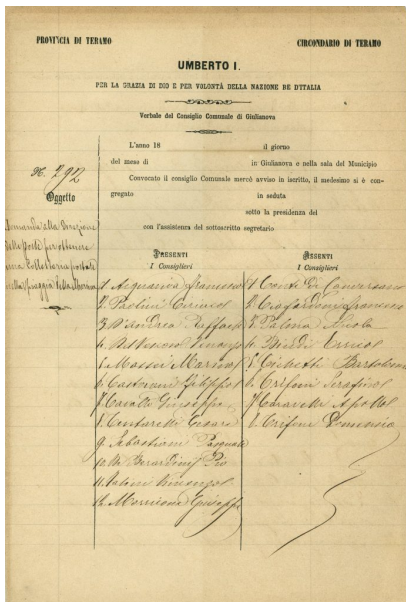 PROVINCIA DI TERAMO
CIRCONDARIO DI TERAMO
UMBERTO I.
PER LA GRAZIA DI DIO E PER VOLONTÀ DELLA NAZIONE RE D'ITALIA
Verbale del Consiglio Comunale di Giulianova
L'anno 18 il giorno
del mese di in Giulianova e nella sala del Municipio
Convocato il consiglio Comunale mercè avviso in iscritto, il medesimo si è con-
gregato in seduta
sotto la presidenza del
con l'assistenza del sottoscritto segretario
N. 292
Oggetto
Domanda alla Direzione
delle Poste per ottenere
una Collettoria postale
nella spiaggia della
PRESENTI
I Consiglieri
1. Acquaviva Francesco
2. Paolini
3. D'Andrea Raffaele
4.
5. Massei Marino
6. Castorani Filippo
7. Cavalli Giuseppe
8. Cesare
9. Sebastiani Pasquale
10. De Berardinis Pio
11. Vincenzo
12. Morricone Giuseppe
ASSENTI
I Consiglieri
1. Conte di Conversano
2. Francesco
3. Nicola
4.
5. Cichetti Bartolomeo
6. Trifoni Serafino
7. Caravelli
8. Trifoni Domenico